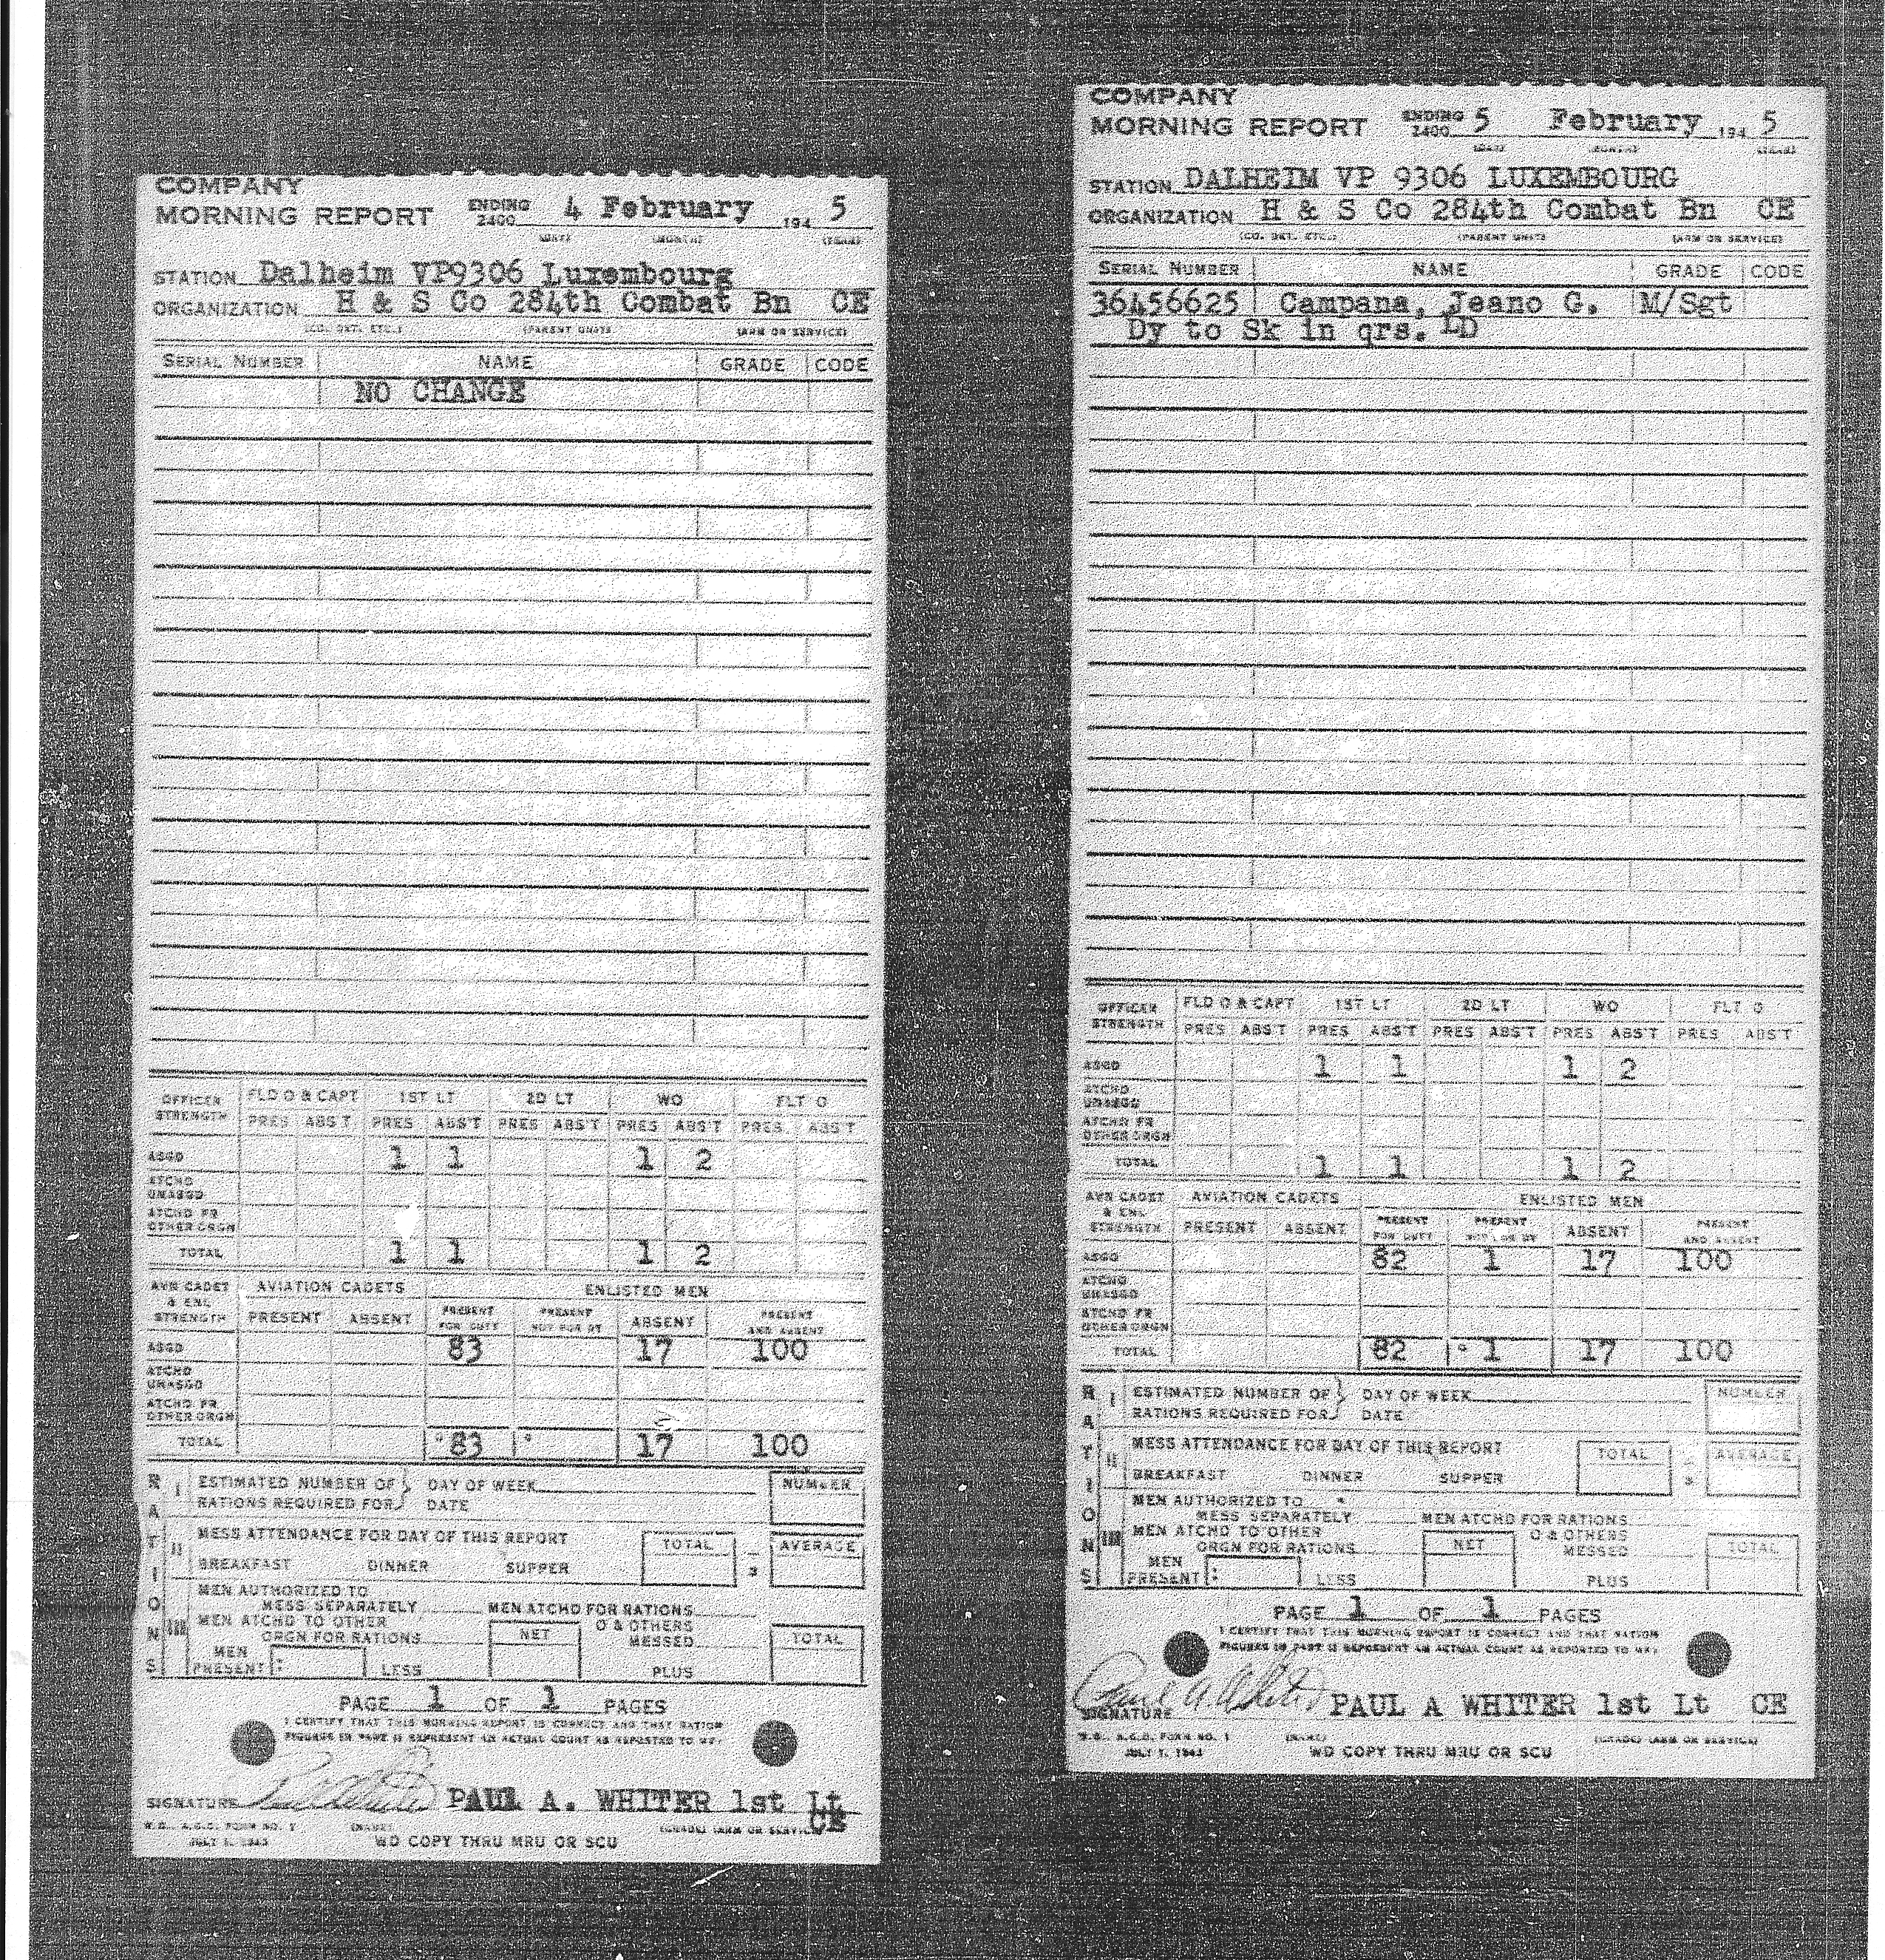 COMPANY
MORNING REPORT ENDING 2400 4 February 194 5
(DAY) (MONTH) (YEAR)
STATION Dalheim VP9306 Luxembourg
ORGANIZATION H & S Co 284th Combat Bn CE
(CO. DET. ETC.) (PARENT UNIT) (ARM OR SERVICE)
SERIAL NUMBER NAME GRADE CODE
NO CHANGE
OFFICER STRENGTH FLD O & CAPT 1ST LT 2D LT WO FLT O
PRES ABS'T PRES ABS'T PRES ABS'T PRES ABS'T PRES ABS'T
ASGD 1 1 1 2
ATCHD UNASGD
ATCHD FR OTHER ORGN
TOTAL 1 1 1 2
AVN CADET & ENL STRENGTH AVIATION CADETS ENLISTED MEN
PRESENT ABSENT PRESENT FOR DUTY PRESENT NOT FOR DY ABSENT PRESENT AND ABSENT
ASGD 83 17 100
ATCHD UNASGD
ATCHD FR OTHER ORGN
TOTAL 83 17 100
RATIONS
I ESTIMATED NUMBER OF } DAY OF WEEK NUMBER
RATIONS REQUIRED FOR DATE
II MESS ATTENDANCE FOR DAY OF THIS REPORT TOTAL AVERAGE
BREAKFAST DINNER SUPPER 3
III MEN AUTHORIZED TO
MESS SEPARATELY MEN ATCHD FOR RATIONS
MEN ATCHD TO OTHER O & OTHERS
ORGN FOR RATIONS NET MESSED TOTAL
MEN
PRESENT : LESS PLUS
PAGE 1 OF 1 PAGES
I CERTIFY THAT THIS MORNING REPORT IS CORRECT AND THAT RATION
FIGURES IN PART II REPRESENT AN ACTUAL COUNT AS REPORTED TO ME.
SIGNATURE PAUL A. WHITER 1st Lt
CE
W.D., A.G.O. FORM NO. 1 (NAME) (GRADE) (ARM OR SERVICE)
JULY 1, 1943 WD COPY THRU MRU OR SCU
COMPANY
MORNING REPORT ENDING 2400 5 February 194 5
(DAY) (MONTH) (YEAR)
STATION DALHEIM VP 9306 LUXEMBOURG
ORGANIZATION H & S Co 284th Combat Bn CE
(CO. DET. ETC.) (PARENT UNIT) (ARM OR SERVICE)
SERIAL NUMBER NAME GRADE CODE
36456625 Campana, Jeano G. M/Sgt
Dy to Sk in qrs. LD
OFFICER STRENGTH FLD O & CAPT 1ST LT 2D LT WO FLT O
PRES ABS'T PRES ABS'T PRES ABS'T PRES ABS'T PRES ABS'T
ASGD 1 1 1 2
ATCHD UNASGD
ATCHD FR OTHER ORGN
TOTAL 1 1 1 2
AVN CADET & ENL STRENGTH AVIATION CADETS ENLISTED MEN
PRESENT ABSENT PRESENT FOR DUTY PRESENT NOT FOR DY ABSENT PRESENT AND ABSENT
ASGD 82 1 17 100
ATCHD UNASGD
ATCHD FR OTHER ORGN
TOTAL 82 1 17 100
RATIONS
I ESTIMATED NUMBER OF } DAY OF WEEK NUMBER
RATIONS REQUIRED FOR DATE
II MESS ATTENDANCE FOR DAY OF THIS REPORT TOTAL AVERAGE
BREAKFAST DINNER SUPPER 3
III MEN AUTHORIZED TO
MESS SEPARATELY MEN ATCHD FOR RATIONS
MEN ATCHD TO OTHER O & OTHERS
ORGN FOR RATIONS NET MESSED TOTAL
MEN
PRESENT : LESS PLUS
PAGE 1 OF 1 PAGES
I CERTIFY THAT THIS MORNING REPORT IS CORRECT AND THAT RATION
FIGURES IN PART II REPRESENT AN ACTUAL COUNT AS REPORTED TO ME.
Paul A Whiter
SIGNATURE PAUL A WHITER 1st Lt CE
W.D., A.G.O. FORM NO. 1 (NAME) (GRADE) (ARM OR SERVICE)
JULY 1, 1943 WD COPY THRU MRU OR SCU